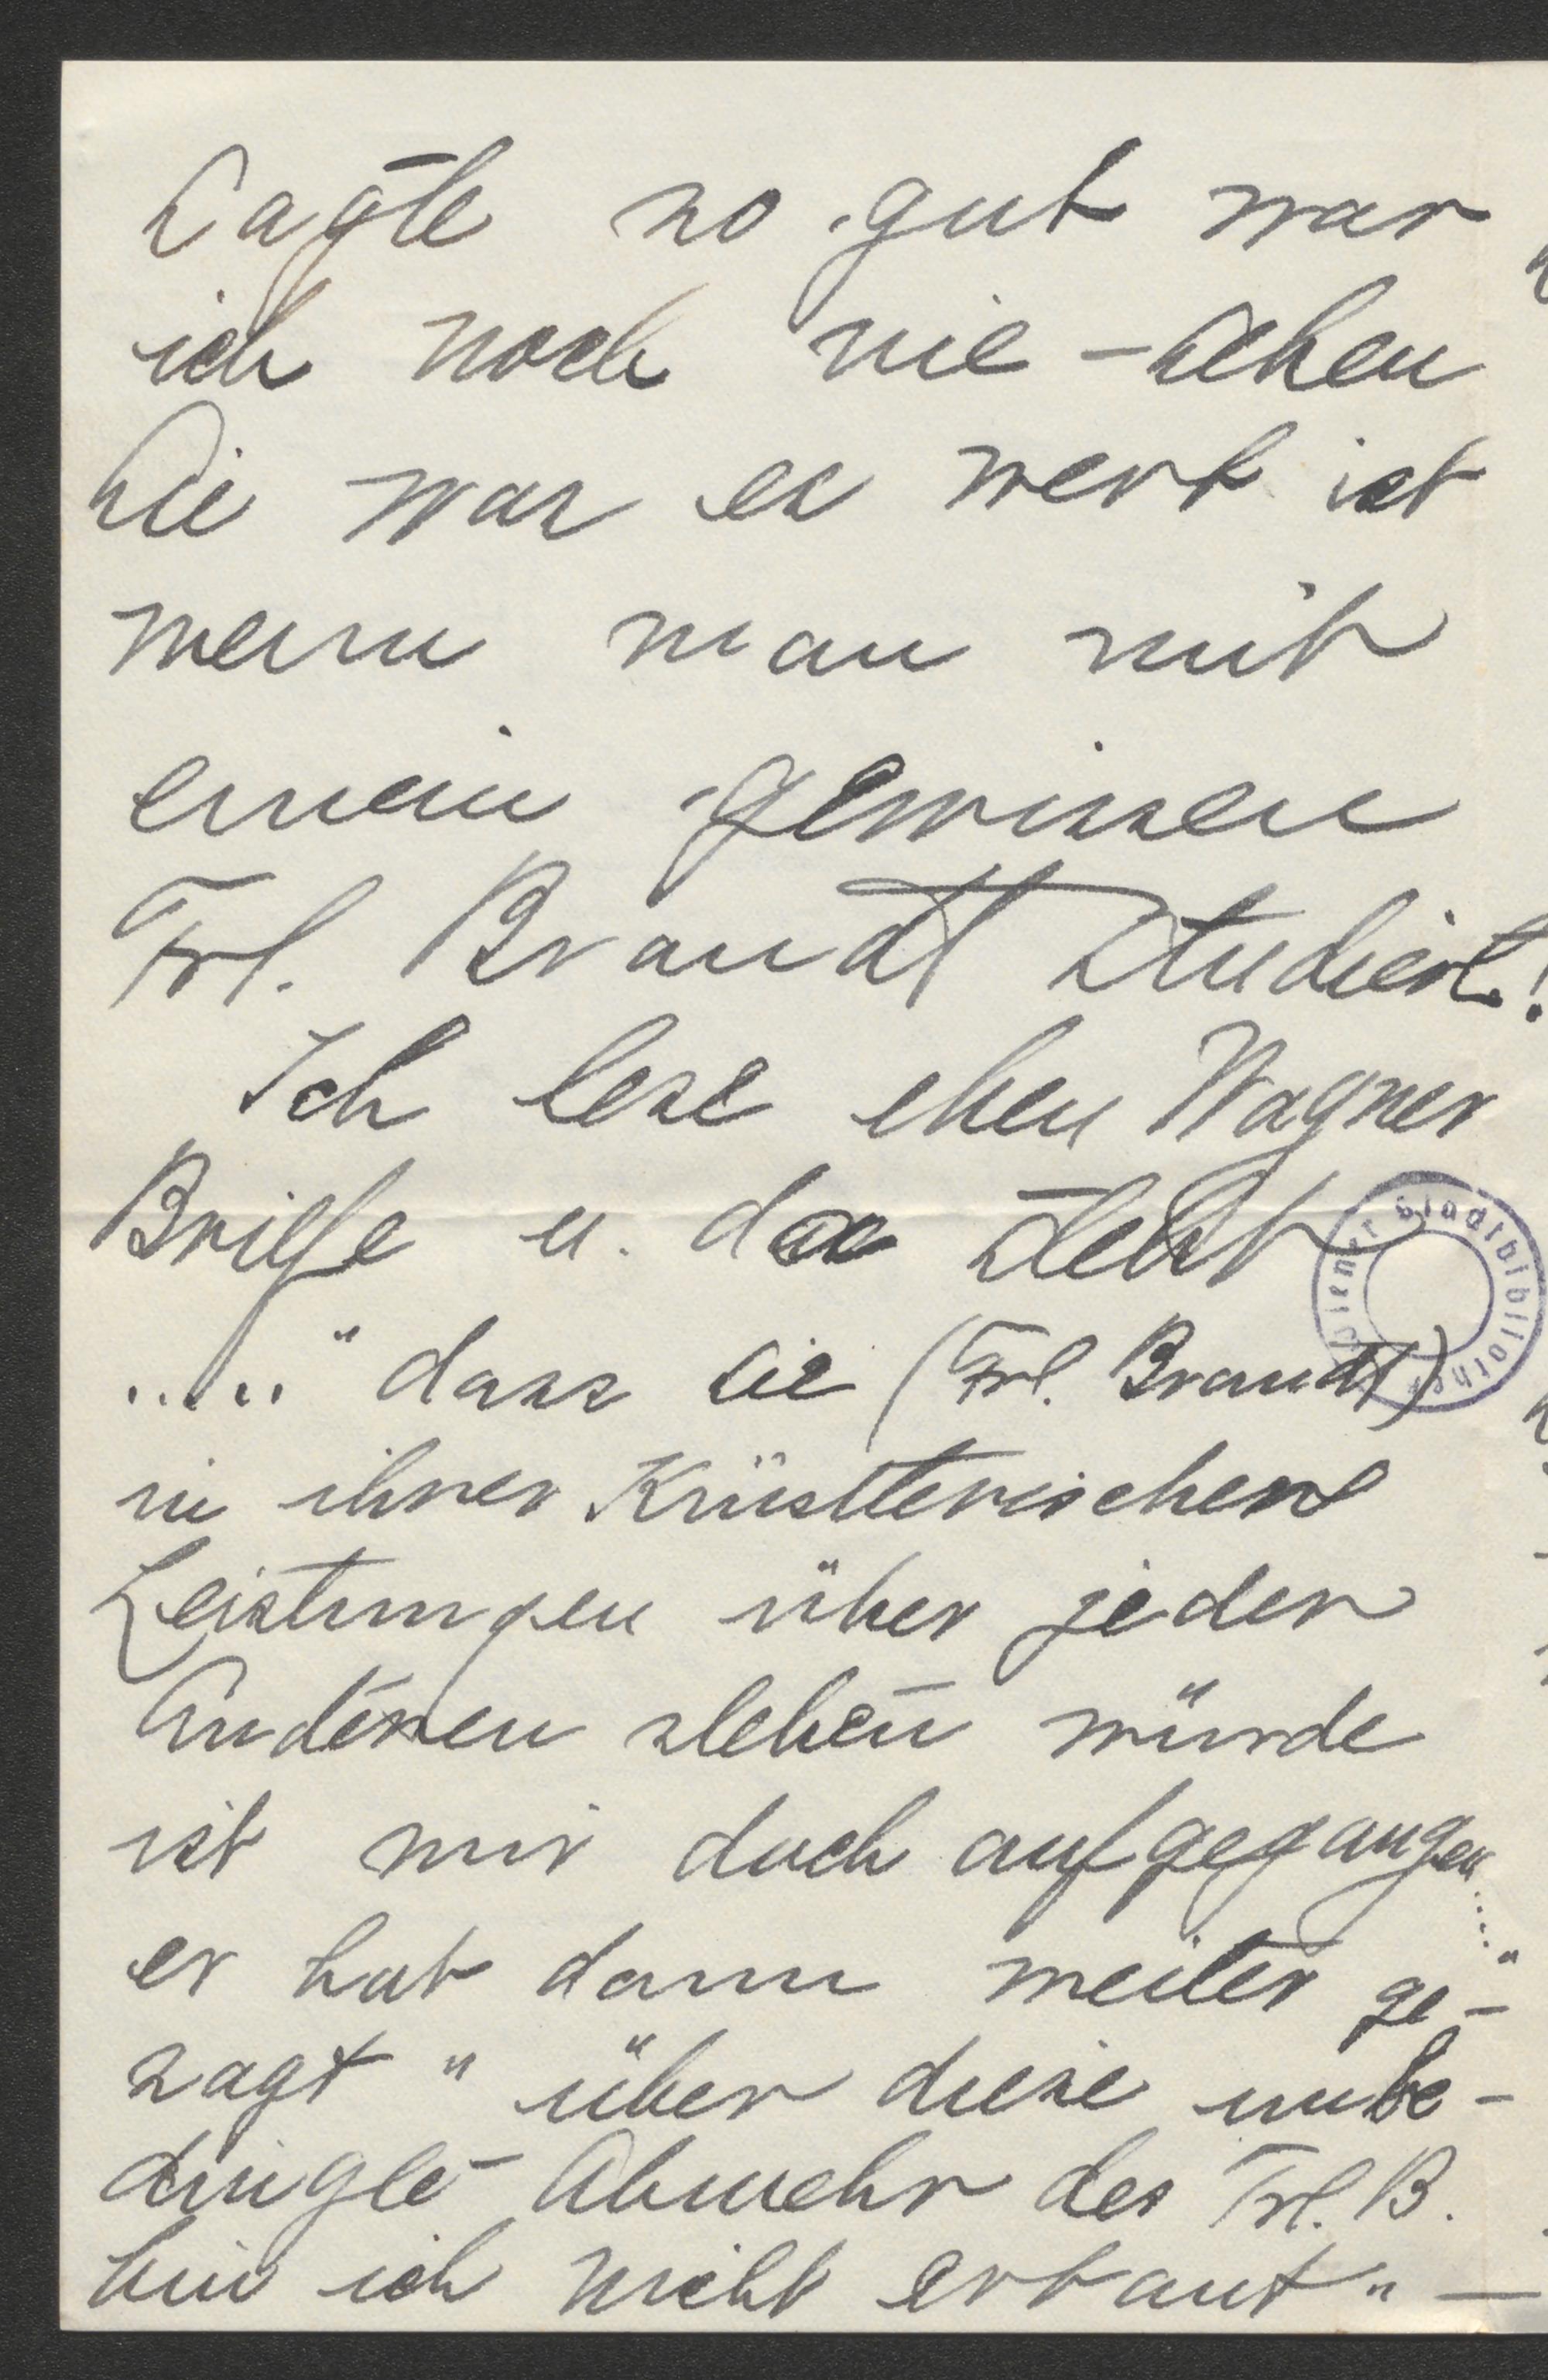 Sagte so gut war
ich noch nie – sehen
Sie was es wert ist
wenn man mit
einem gewissen
Frl. Brandt Studiert!
Ich lese eben Wagner
Briefe u. da steht
..... "dass sie (Frl. Brandt)
in ihrer Künstlerischen
Leistungen über jeden
Anderen stehen würde
ist mir doch aufgegangen....."
er hat dann weiter ge-
sagt "über diese unbe-
dingte Abwehr des Frl. B.
bin ich nicht erbaut" –
Wiener Stadtbibliothek